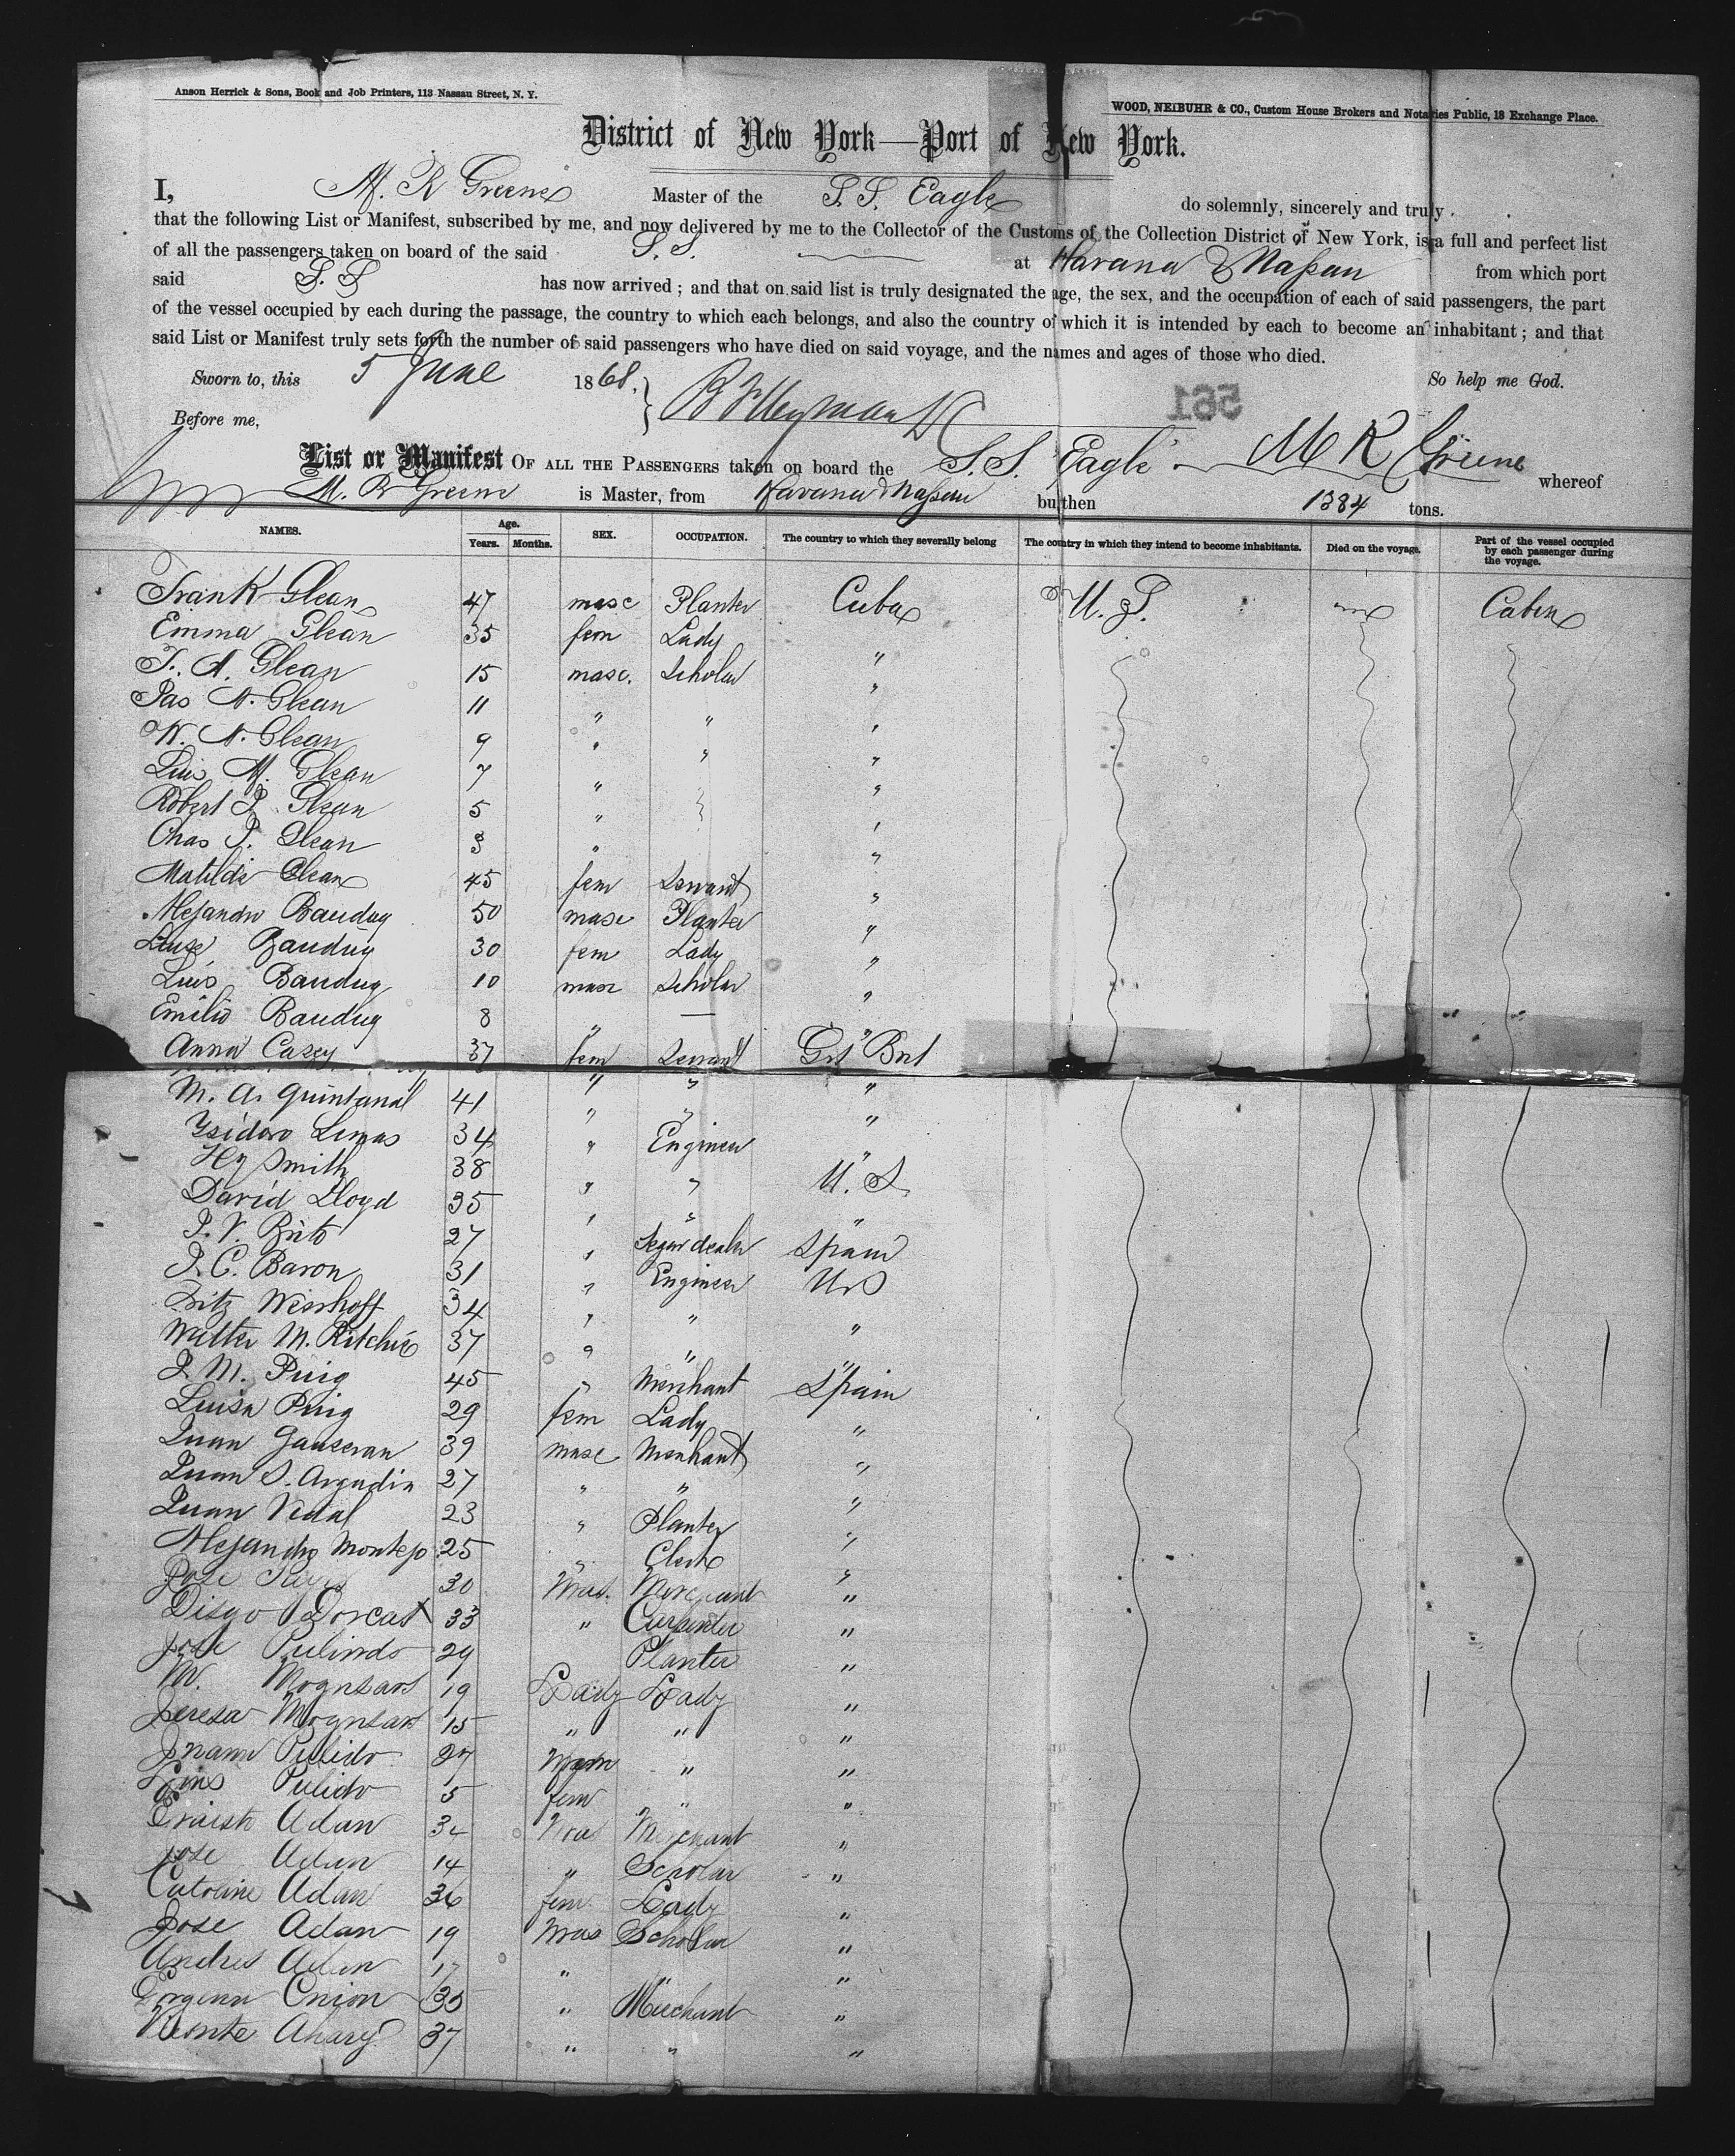 Anson Herrick & Sons, Book and Job Printers, 113 Nassau Street, N. Y.
WOOD, NEIBUHR & CO., Custom House Brokers and Notaries Public, 18 Exchange Place.
District of New York—Port of New York.
I, M. R Greene Master of the S.S. Eagle do solemnly, sincerely and truly
that the following List or Manifest, subscribed by me, and now delivered by me to the Collector of the Customs of the Collection District of New York, is a full and perfect list
of all the passengers taken on board of the said S.S. at Havana & Nassau from which port
said S.S has now arrived; and that on said list is truly designated the age, the sex, and the occupation of each of said passengers, the part
of the vessel occupied by each during the passage, the country to which each belongs, and also the country of which it is intended by each to become an inhabitant; and that
said List or Manifest truly sets forth the number of said passengers who have died on said voyage, and the names and ages of those who died.
Sworn to, this 5 June 1868. So help me God.
561
Before me,
M R Greene
List or Manifest OF ALL THE PASSENGERS taken on board the S.S. Eagle whereof
M. R Greene is Master, from Havana & Nassau burthen 1384 tons.
NAMES. Age. Years. Months. SEX. OCCUPATION. The country to which they severally belong The country in which they intend to become inhabitants. Died on the voyage. Part of the vessel occupied by each passenger during the voyage.
Frank Glean 47 masc Planter Cuba U.S. Cabin
Emma Glean 35 fem Lady "
T. A. Glean 15 masc. Scholar "
Jas A. Glean 11 " " "
W. A. Glean 9 " " "
Luis M. Glean 7 " "
Robert P. Glean 5 " "
Chas P. Glean 3 " "
Matilda Glean 45 fem Servant "
Alejandro Bauduy 50 masc Planter "
Luise Bauduy 30 fem Lady "
Luis Bauduy 10 masc Scholar "
Emilio Bauduy 8 " — "
Anna Casey 37 fem Servant Grt Brit
M. A. Quintanal 41 " " "
Ysidoro Limas 34 " " "
Hy Smith 38 " Engineer "
David Lloyd 35 " " U.S
P. V. Brito 27 " " "
J. C. Baron 31 " Segar dealer Spain
Fritz Wishhoff 34 " Engineer U S
Walter M. Ritchie 37 " " "
J. M. Puig 45 " Merchant Spain
Luisa Puig 29 fem Lady "
Juan Gauseran 39 masc Merchant "
Juan S. Argudin 27 " " "
Juan Vidal 23 " Planter "
Alejandro Montejo 25 " Clerk "
Jose 30 Mas. Merchant "
Diego Dorcat 33 " Carpenter "
Jose Pulindo 29 Planter "
M. 19 Lady Lady "
Teresa 15 " " "
Juana Pulido 27 " "
Luis Pulido 5 fem " "
Adan Mas Merchant "
Jose Adan 14 " Scholar "
Caroline Adan 36 fem Lady "
Jose Adan 19 Mas Scholar "
Andres Adan 17 " " "
Onion 35 " Merchant "
37 " " "